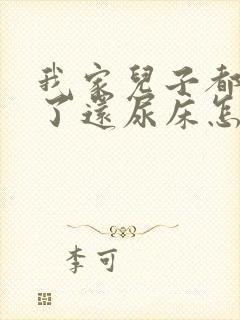 我家兒子都
了還尿床怎
李可